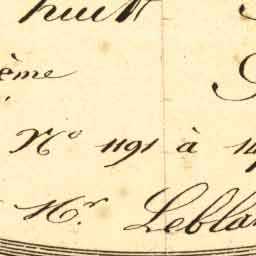 huit
ème
N° 1191 à 14
Mr. Leblan